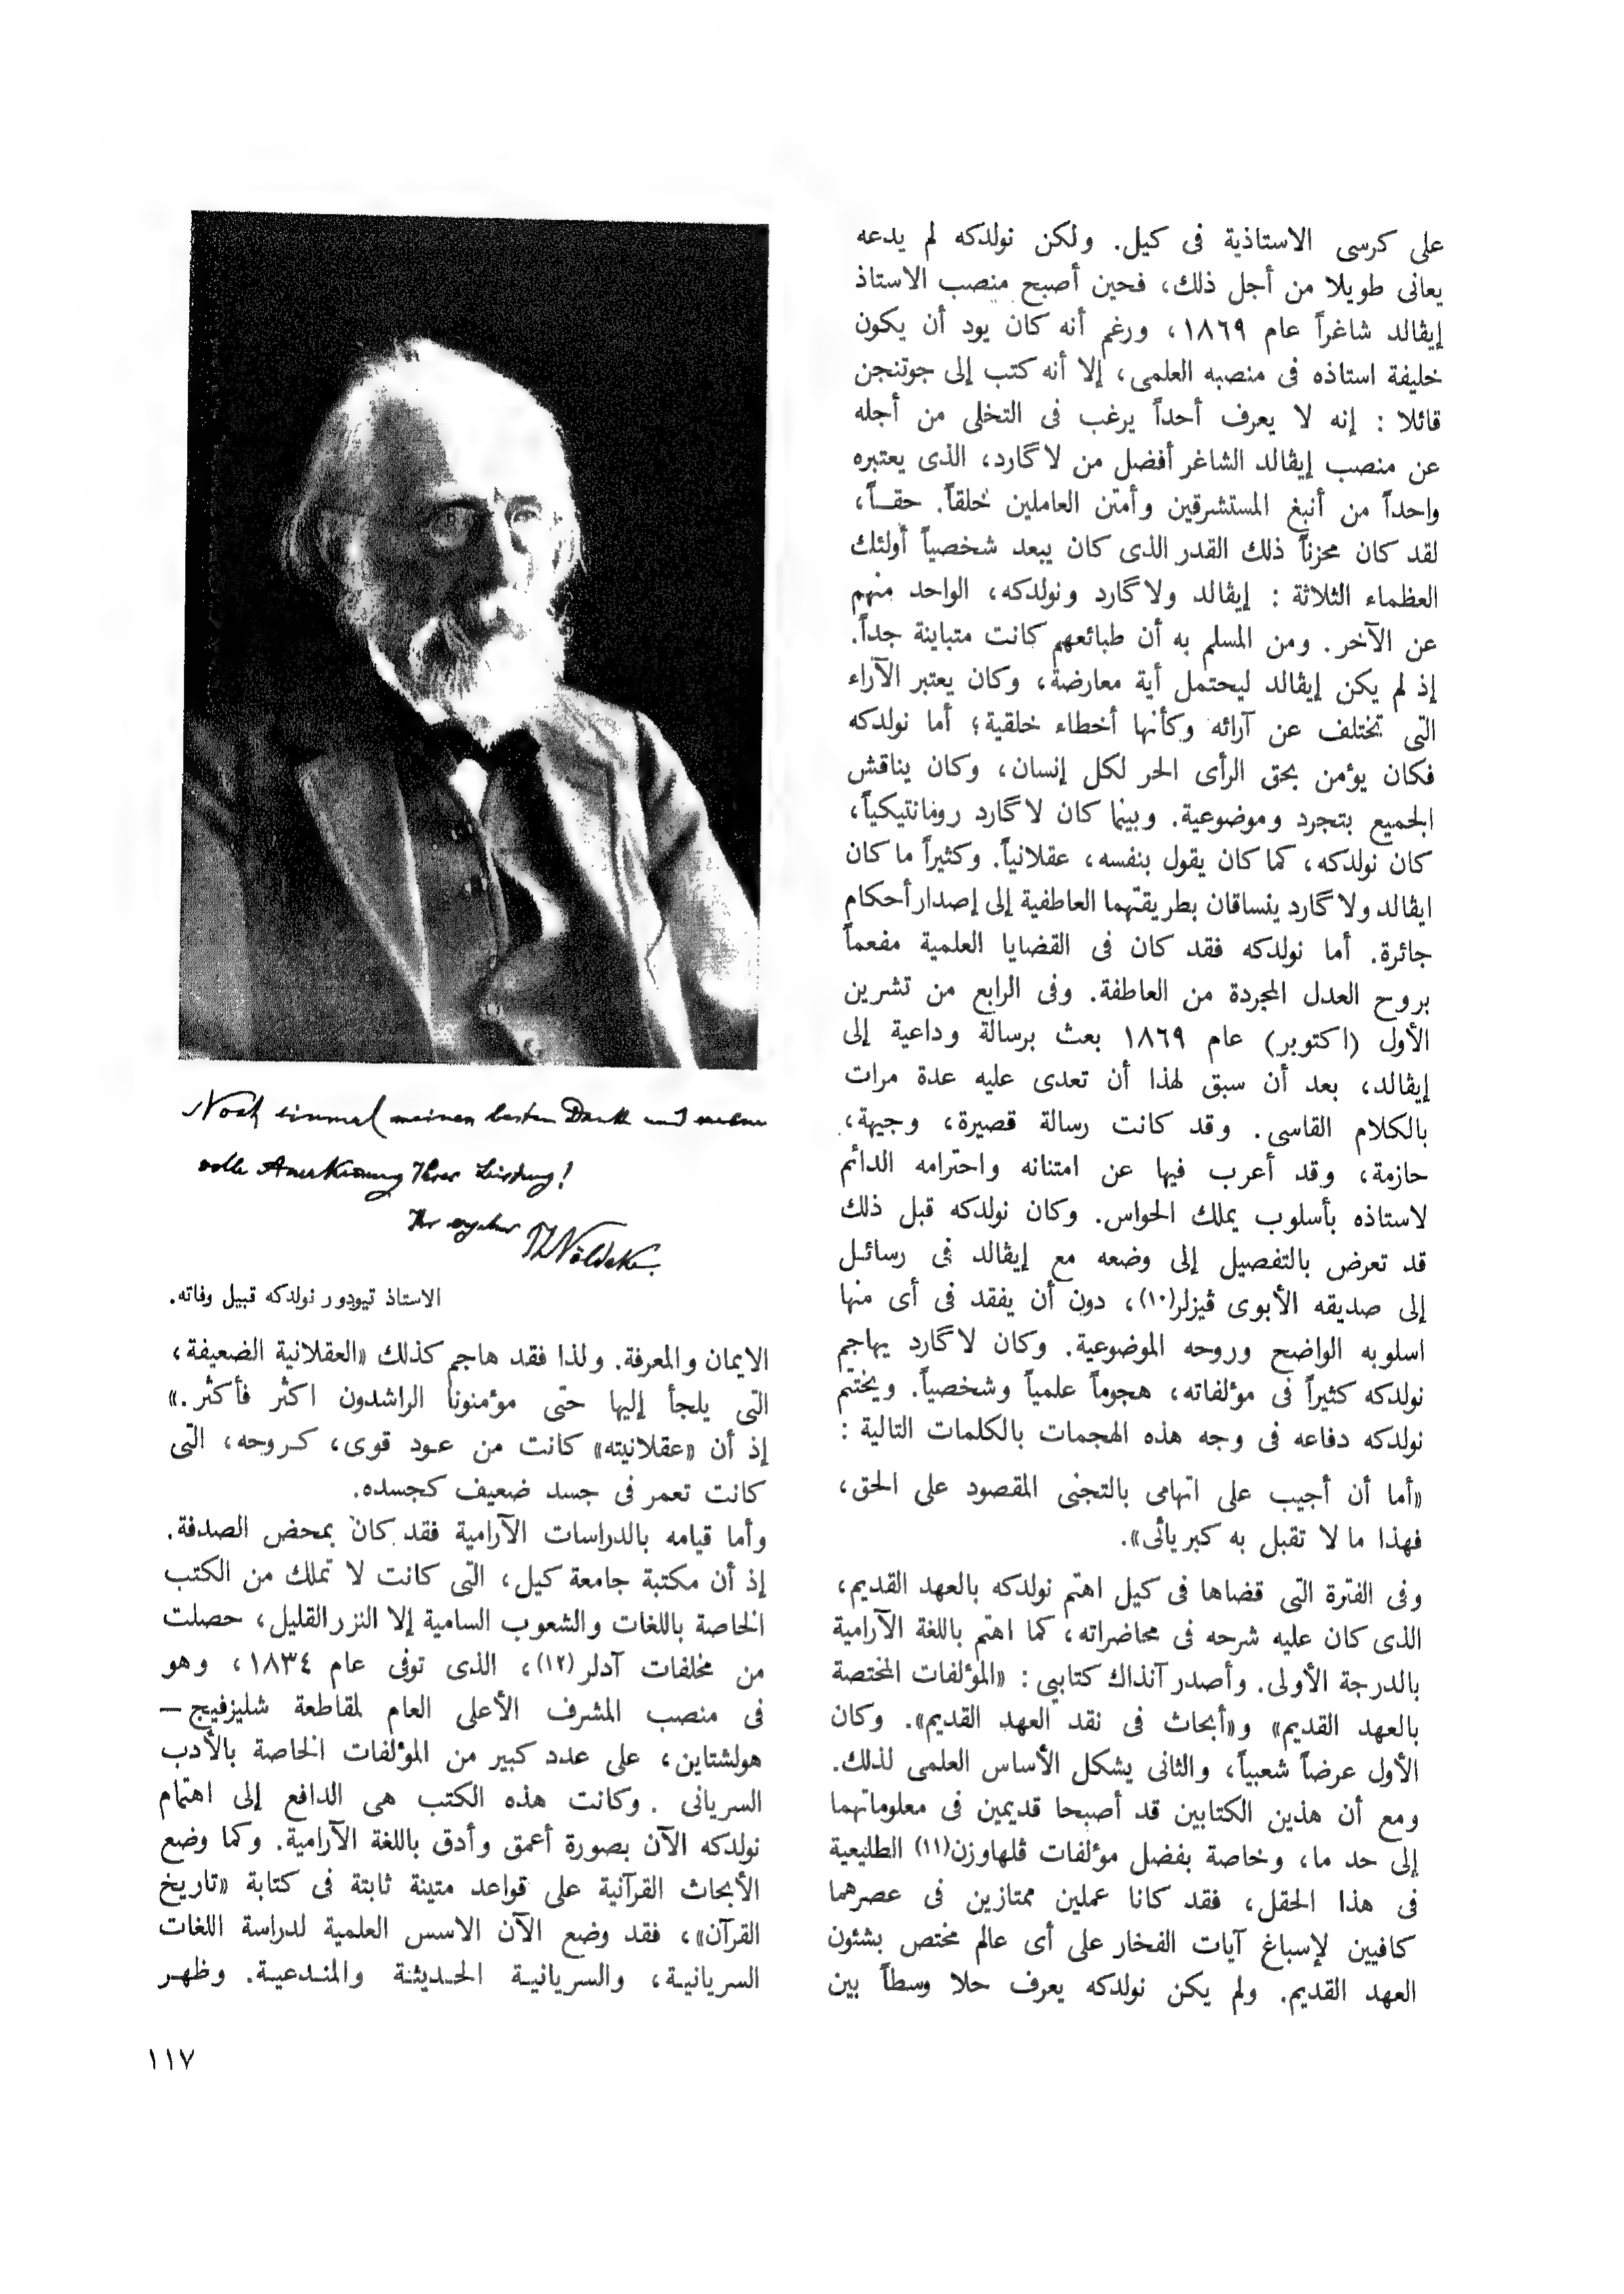 على كرسى الاستاذية فى كيل. ولكن نولدكه لم يدعه
يعانى طويلا من أجل ذلك، فحين أصبح منصب الاستاذ
إيڤالد شاغراً عام ١٨٦٩، ورغم أنه كان يود أن يكون
خليفة استاذه فى منصبه العلمى، إلا أنه كتب إلى جوتنجن
قائلا : إنه لا يعرف أحداً يرغب فى التخلى من أجله
عن منصب إيڤالد الشاغر أفضل من لاگارد، الذى يعتبره
واحداً من أنبغ المستشرقين وأمتن العاملين خلقاً. حقــاً،
لقد كان محزناً ذلك القدر الذى كان يبعد شخصياً أولئك
العظماء الثلاثة : إيڤالد ولاگارد ونولدكه، الواحد منهم
عن الآخر. ومن المسلم به أن طبائعهم كانت متباينة جداً.
إذ لم يكن إيڤالد ليحتمل أية معارضة، وكان يعتبر الآراء
التى تختلف عن آرائه وكأنها أخطاء خلقية؛ أما نولدكه
فكان يؤمن بحق الرأى الحر لكل إنسان، وكان يناقش
الجميع بتجرد وموضوعية. وبينما كان لاگارد رومانتيكياً،
كان نولدكه، كما كان يقول بنفسه، عقلانياً. وكثيراً ما كان
ايڤالد ولاگارد ينساقان بطريقتهما العاطفية إلى إصدار أحكام
جائرة. أما نولدكه فقد كان فى القضايا العلمية مفعماً
بروح العدل المجردة من العاطفة. وفى الرابع من تشرين
الأول (اكتوبر) عام ١٨٦٩ بعث برسالة وداعية إلى
إيڤالد، بعد أن سبق لهذا أن تعدى عليه عدة مرات
بالكلام القاسى. وقد كانت رسالة قصيرة، وجيهة،
حازمة، وقد أعرب فيها عن امتنانه واحترامه الدائم
لاستاذه بأسلوب يملك الحواس. وكان نولدكه قبل ذلك
قد تعرض بالتفصيل إلى وضعه مع إيڤالد فى رسائل
إلى صديقه الأبوى ڤيزلر(١٠)، دون أن يفقد فى أى منها
اسلوبه الواضح وروحه الموضوعية. وكان لاگارد يهاجم
نولدكه كثيراً فى مؤلفاته، هجوماً علمياً وشخصياً. ويختتم
نولدكه دفاعه فى وجه هذه الهجمات بالكلمات التالية :
«أما أن أجيب على اتهامى بالتجنى المقصود على الحق،
فهذا ما لا تقبل به كبريائى».
وفى الفترة التى قضاها فى كيل اهتم نولدكه بالعهد القديم،
الذى كان عليه شرحه فى محاضراته، كما اهتم باللغة الآرامية
بالدرجة الأولى. وأصدر آنذاك كتابيى : «المؤلفات المختصة
بالعهد القديم» و«أبحاث فى نقد العهد القديم». وكان
الأول عرضاً شعبياً، والثانى يشكل الأساس العلمى لذلك.
ومع أن هذين الكتابين قد أصبحا قديمين فى معلوماتهما
إلى حد ما، وخاصة بفضل مؤلفات ڤلهاوزن(١١) الطليعية
فى هذا الحقل، فقد كانا عملين ممتازين فى عصرهما
كافيين لإسباغ آيات الفخار على أى عالم مختص بشئون
العهد القديم. ولم يكن نولدكه يعرف حلا وسطاً بين
Noch einmal meinen besten Dank und meine
volle Anerkennung Ihrer Leistung!
Ihr ergebener ThNöldeke.
الاستاذ تيودور نولدكه قبيل وفاته.
الايمان والمعرفة. ولذا فقد هاجم كذلك «العقلانية الضعيفة،
التى يلجأ إليها حتى مؤمنونا الراشدون اكثر فأكثر.»
إذ أن «عقلانيته» كانت من عود قوى، كروحه، التى
كانت تعمر فى جسد ضعيف كجسده.
وأما قيامه بالدراسات الآرامية فقد كان بمحض الصدفة.
إذ أن مكتبة جامعة كيل، التى كانت لا تملك من الكتب
الخاصة باللغات والشعوب السامية إلا النزر القليل، حصلت
من مخلفات آدلر(١٢)، الذى توفى عام ١٨٣٤، وهو
فى منصب المشرف الأعلى العام لمقاطعة شليزفيج –
هولشتاين، على عدد كبير من المؤلفات الخاصة بالأدب
السريانى . وكانت هذه الكتب هى الدافع إلى اهتمام
نولدكه الآن بصورة أعمق وأدق باللغة الآرامية. وكما وضع
الأبحاث القرآنية على قواعد متينة ثابتة فى كتابة «تاريخ
القرآن»، فقد وضع الآن الاسس العلمية لدراسة اللغات
السريانيـة، والسريانيـة الحـديثـة والمنـدعيـة. وظهـر
١١٧